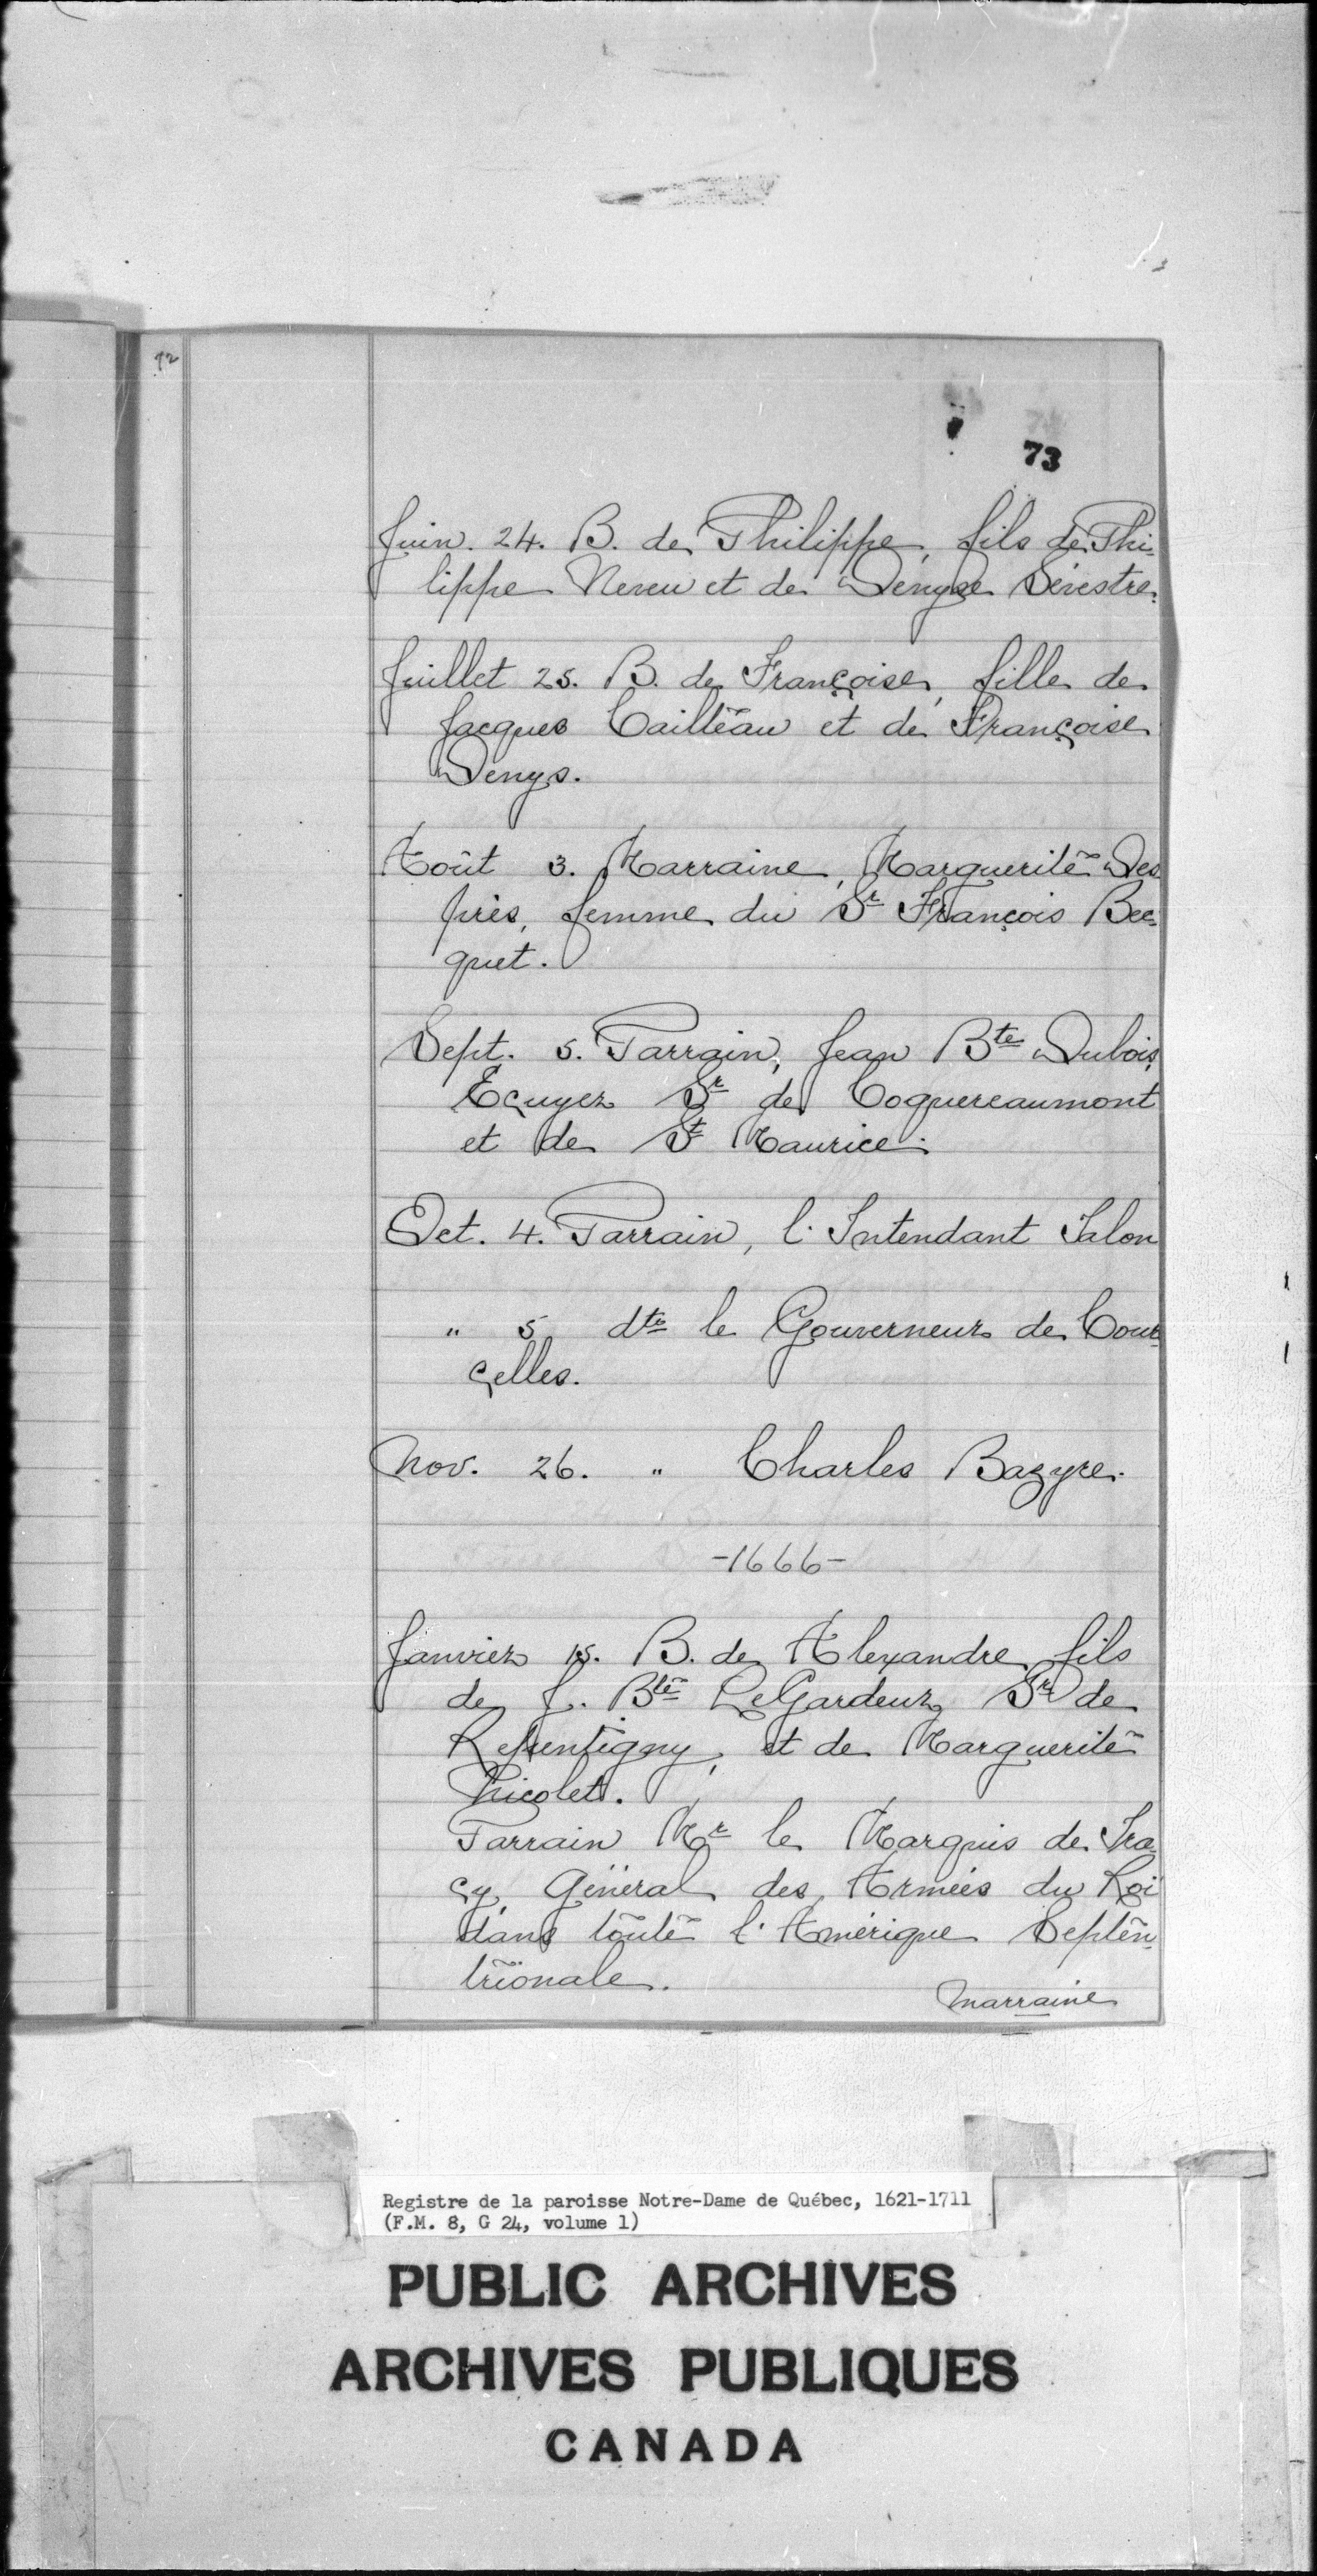 72
73
Juin. 24. B. de Philippe, fils de Phi-
lippe Neveu et de Denyse Sévestre.
Juillet 25. B. de Françoise, fille de
Jacques Cailleau et de Françoise
Denys.
Août 3. Marraine, Marguerite Des
près, femme du Sr François Bec-
quet.
Sept. 5. Parrain, Jean Bte Dubois,
Ecuyer Sr de Coquereaumont
et de St Maurice.
Oct. 4. Parrain, l'Intendant Talon
" 5 dto le Gouverneur de Cour-
celles.
Nov. 26. " Charles Bazyre.
-1666-
Janvier 15. B. de Alexandre fils
de J. Bte LeGardeur, Sr de
Repentigny, et de Marguerite
Nicolet.
Parrain Mr le Marquis de Tra-
cy, Général des Armées du Roi
dans toute l'Amérique Septen-
trionale.
Marraine
Registre de la paroisse Notre-Dame de Québec, 1621-1711
(F.M. 8, G 24, volume 1)
PUBLIC ARCHIVES
ARCHIVES PUBLIQUES
CANADA